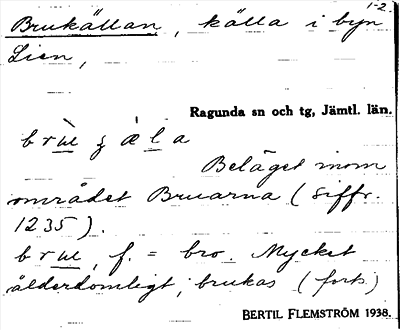 1-2.
Brukällan, källa i byn
Lien,
Ragunda sn och tg, Jämtl. län.
Beläget inom
området Bruarna (siffr.
1235).
f. = bro. Mycket
ålderdomligt; brukas (forts.)
BERTIL FLEMSTRÖM 1938.